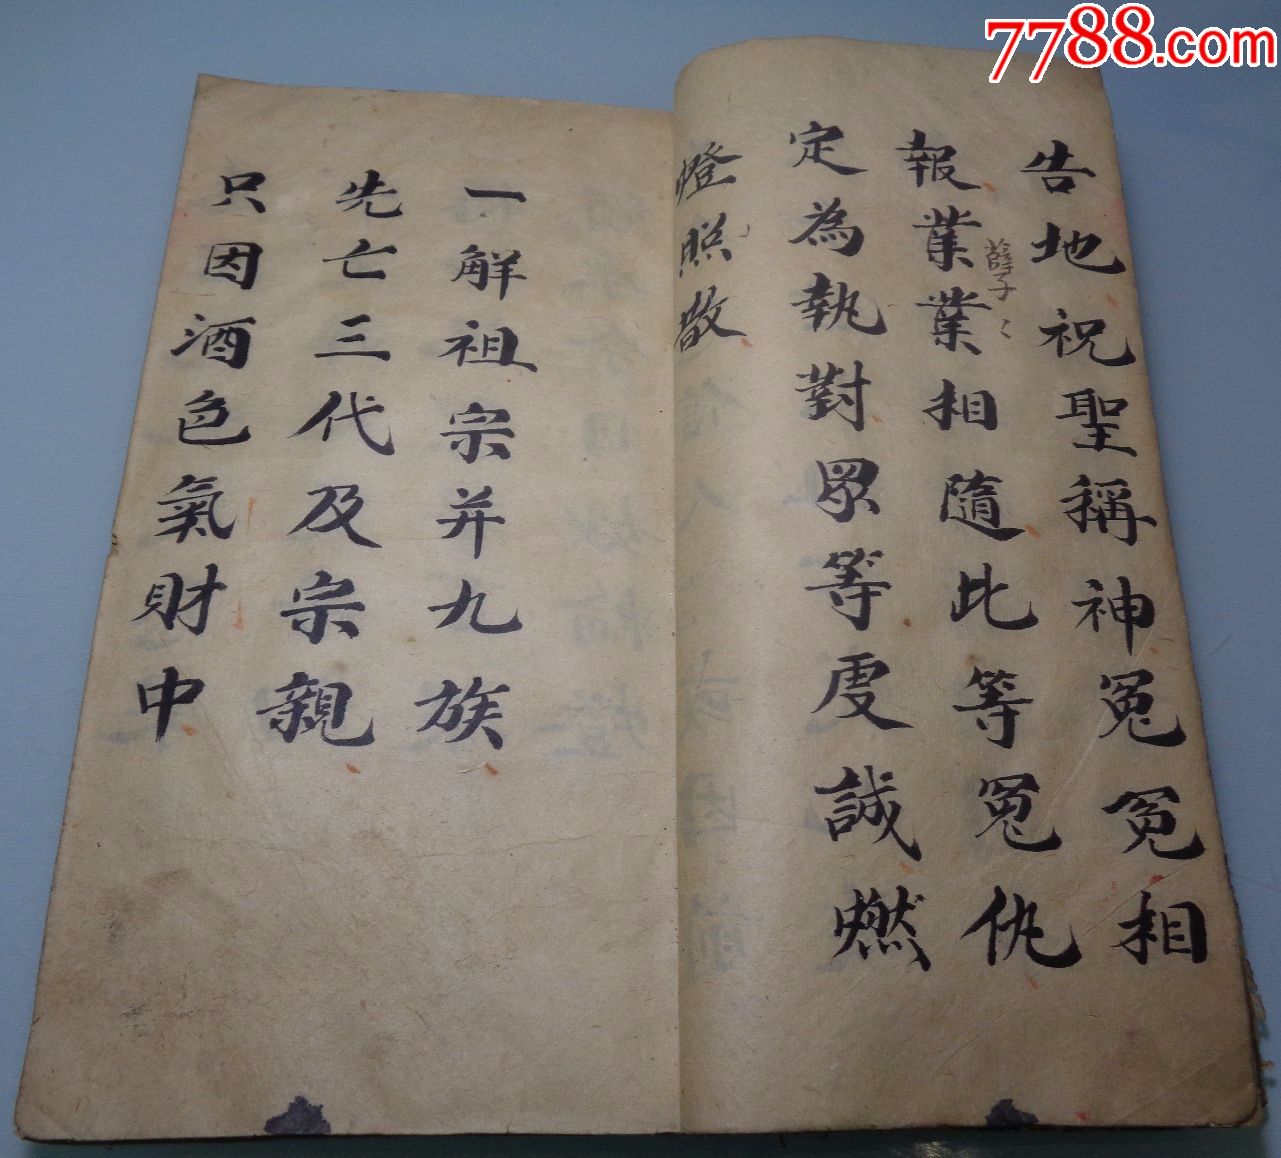 7788.com
告地祝聖稱神冤冤相
報業業相隨此等冤仇
孽〻
定為執對眾等虔誠燃
燈照散
一解祖宗并九族
先亡三代及宗親
只因酒色氣財中